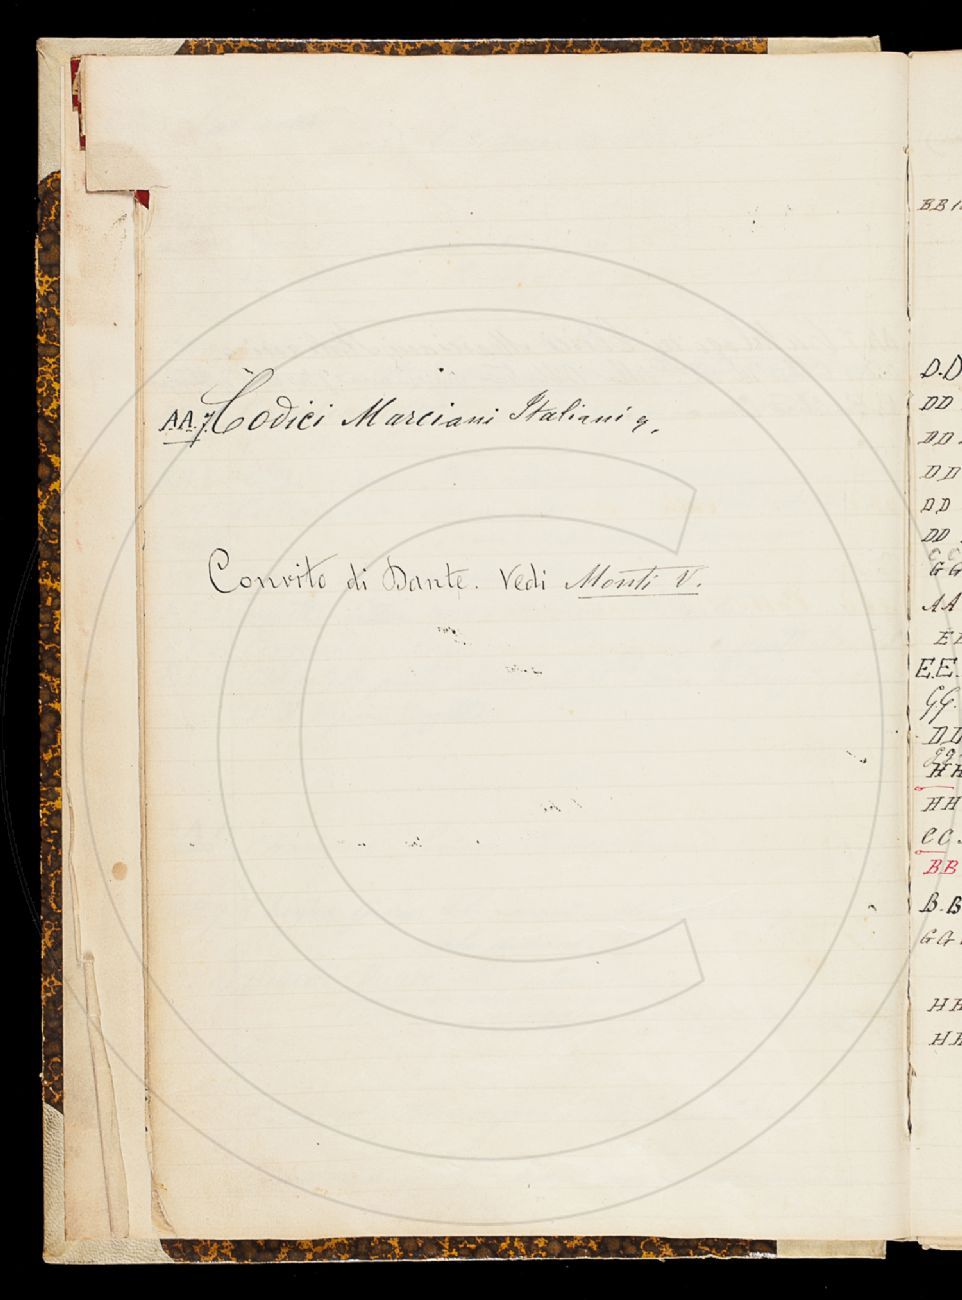 A.A.7. Codici Marciani Italiani 9.
Convito di Dante. Vedi Monti V.
BB
D.D
DD
DD
DD
DD
DD
CC
GG
AA
E.E.
GG.
DD
HH
HH
CC.
BB
B.B
GG
HH
HH